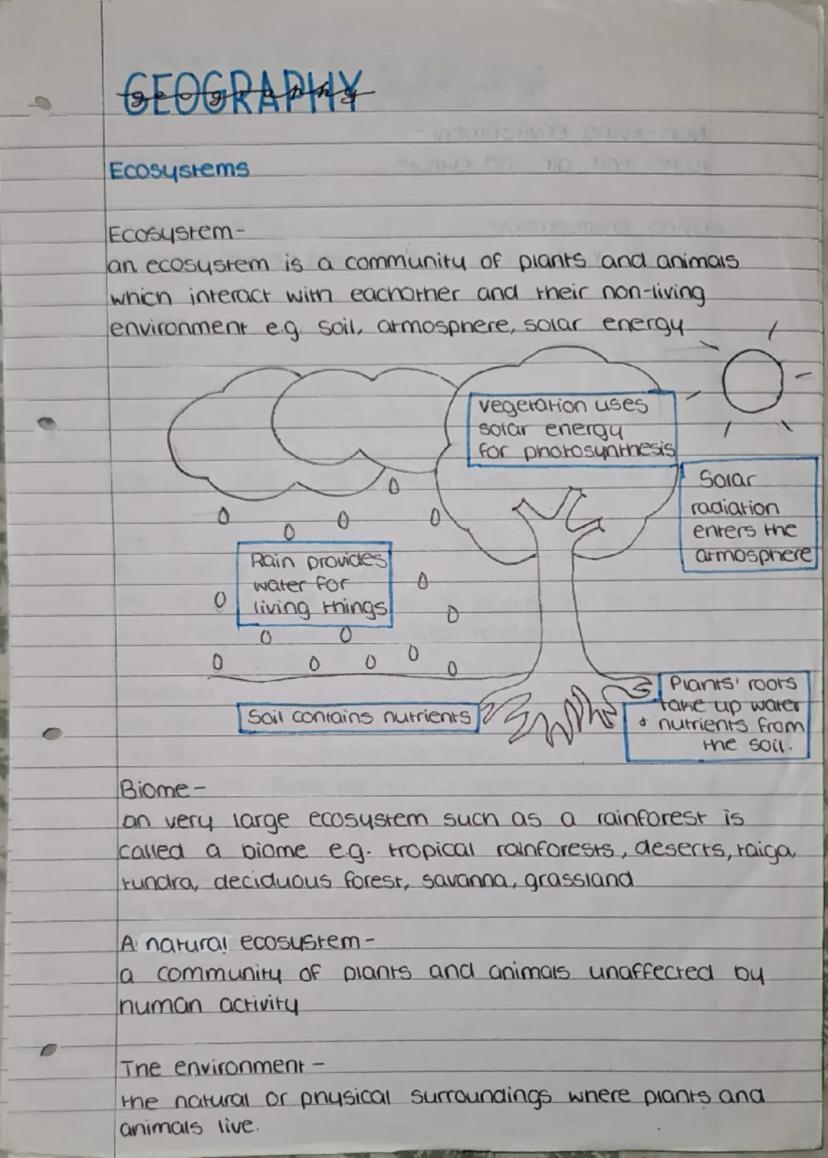 GEOGRAPHY
geography
Ecosystems
Ecosystem-
an ecosystem is a community of plants and animals
which interact with eachother and their non-living
environment e.g. soil, atmosphere, solar energy
vegetation uses
solar energy
for photosynthesis
Solar
radiation
enters the
atmosphere
Rain provides
water for
living things
Soil contains nutrients
Plants' roots
take up water
+ nutrients from
the soil.
Biome-
an very large ecosystem such as a rainforest is
called a biome e.g. tropical rainforests, deserts, taiga,
tundra, deciduous forest, savanna, grassland
A natural ecosystem-
a community of plants and animals unaffected by
human activity
The environment-
the natural or physical surroundings where plants and
animals live.